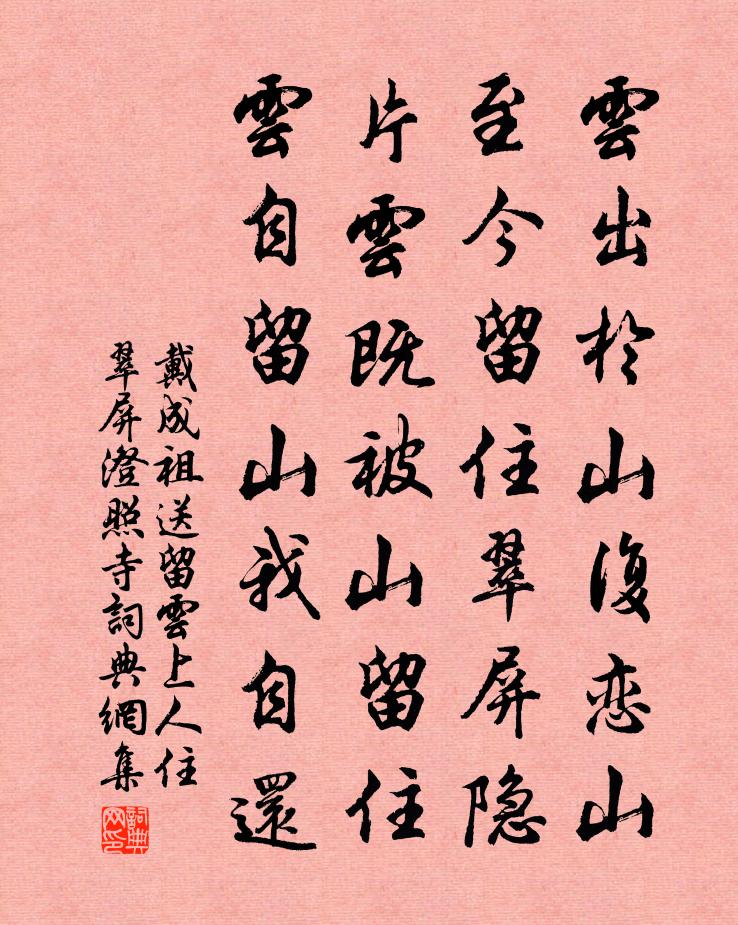 雲出於山復恋山
至今留住翠屏隐
片雲既被山留住
雲自留山我自還
戴成祖送留雲上人住
翠屏澄照寺詞典網集
詞典
网印